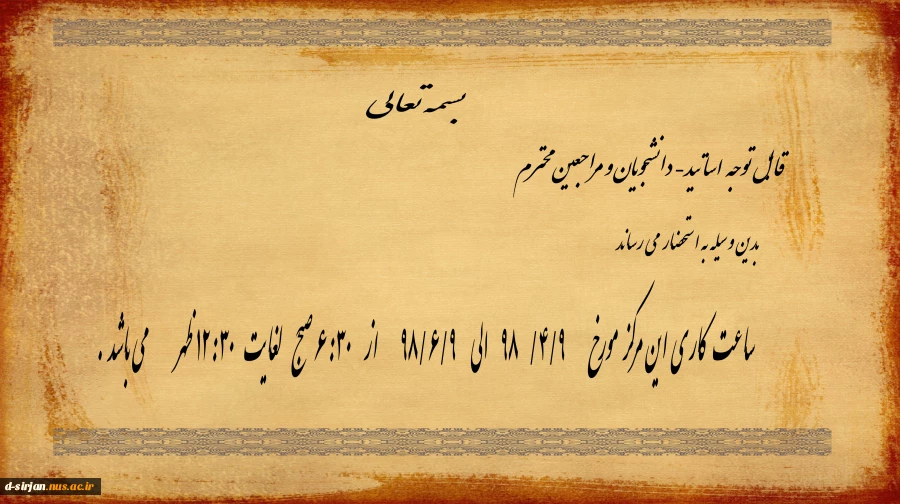 بسمه تعالی
قابل توجه اساتید - دانشجویان و مراجعین محترم
بدین وسیله به استحضار می رساند
ساعت کاری این مرکز مورخ ۹/۴/ ۹۸ الی ۹۸/۶/۹ از ۶:۳۰ صبح لغایت ۱۲:۳۰ ظهر می باشد .
d-sirjan.nus.ac.ir